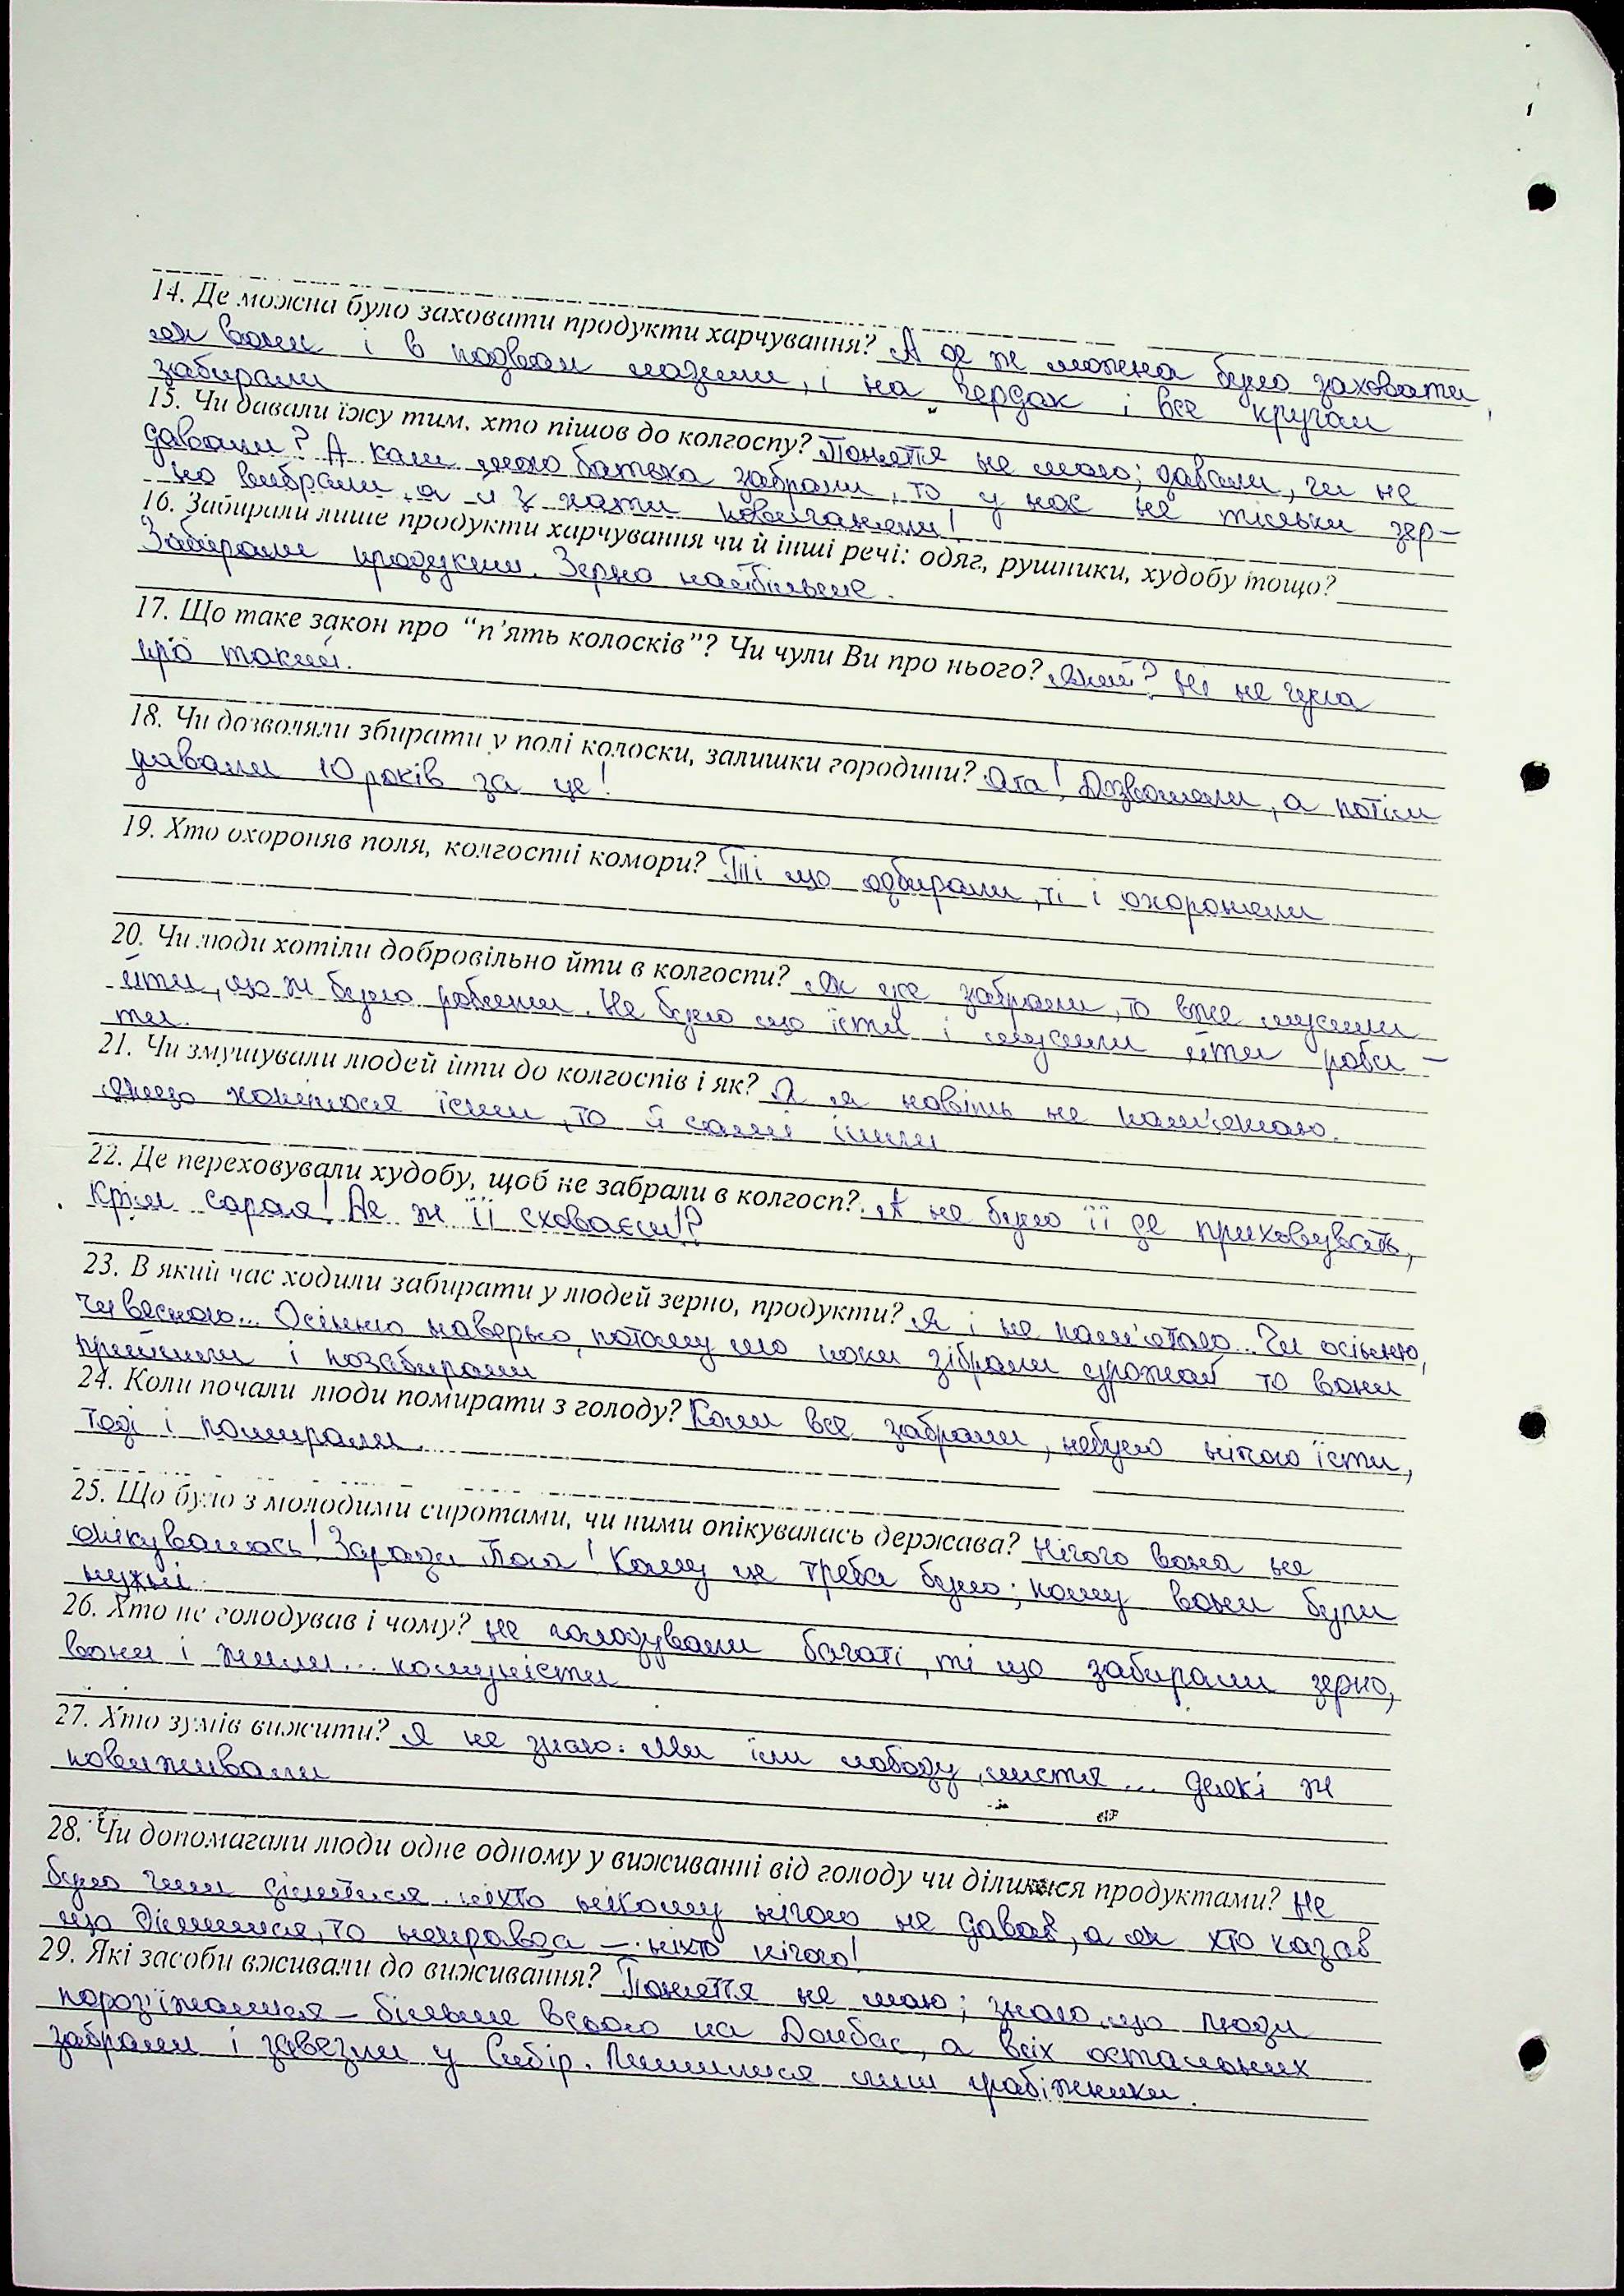 14. Де можна було заховати продукти харчування? А де ж можна було заховати,
як вони і в подвал лазили, і на чердак і все кругом
забирали
15. Чи давали їжу тим, хто пішов до колгоспу? Поняття не маю; давали, чи не
давали? А коли мого батька забрали, то у нас не тільки зер-
но вибрали, а й з хати повиганяли!
16. Забирали лише продукти харчування чи й інші речі: одяг, рушники, худобу тощо?
Забирали продукти. Зерно найбільше.
17. Що таке закон про “п’ять колосків”? Чи чули Ви про нього? Який? Ні не чула
про такий.
18. Чи дозволяли збирати у полі колоски, залишки городини? Ага! Дозволяли, а потім
давали 10 років за це!
19. Хто охороняв поля, колгоспні комори? Ті що одбирали, ті і охороняли
20. Чи люди хотіли добровільно йти в колгоспи? Як уже забрали, то вже мусили
йти, що ж було робити. Не було що їсти і мусили йти роби-
ти.
21. Чи змушували людей йти до колгоспів і як? А я навіть не пам'ятаю.
якщо хотілося їсти, то й самі ішли
22. Де переховували худобу, щоб не забрали в колгосп? А не було її де приховувать,
крім сарая! Де ж її сховаєш!?
23. В який час ходили забирати у людей зерно, продукти? Я і не пам'ятаю... Чи осінню,
чи весною... Осінню наверно, потому що поки зібрали урожай то вони
прийшли і позабирали
24. Коли почали люди помирати з голоду? Коли все забрали, небуло нічого їсти,
тоді і помирали.
25. Що було з молодими сиротами, чи ними опікувалась держава? Нічого вона не
опікувалась! Зараза така! Кому це треба було; кому вони були
нужні
26. Хто не голодував і чому? не голодували багаті, ті що забирали зерно,
вони і жили... комуністи
27. Хто зумів вижити? Я не знаю. Ми їли лободу, листя... деякі ж
повиживали
28. Чи допомагали люди одне одному у виживанні від голоду чи ділилися продуктами? Не
було чим ділитися. ніхто нікому нічого не давав, а як хто казав
що ділилися, то неправда – ніхто нічого!
29. Які засоби вживали до виживання? Поняття не маю; знаю що люди
пороз'їжалися – більше всього на Донбас, а всіх остальних
забрали і завезли у Сибір. Лишилися лиш грабіжники.